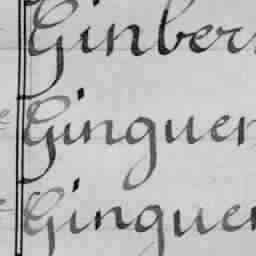 Ginber
Ginguen
Ginguen